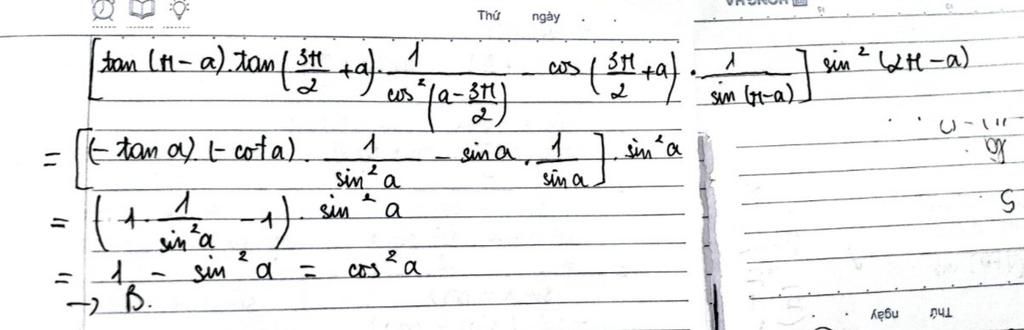 Thứ ngày
[tan (π - a). tan (3π/2 + a). 1/cos²(a - 3π/2) - cos (3π/2 + a) . 1/sin (π-a)] sin² (2π - a)
= [(- tan a). (- cot a) . 1/sin² a - sin a . 1/sin a] . sin² a
= (1 . 1/sin² a - 1) . sin² a
= 1 - sin² a = cos² a
→ B.
5
Thứ ngày